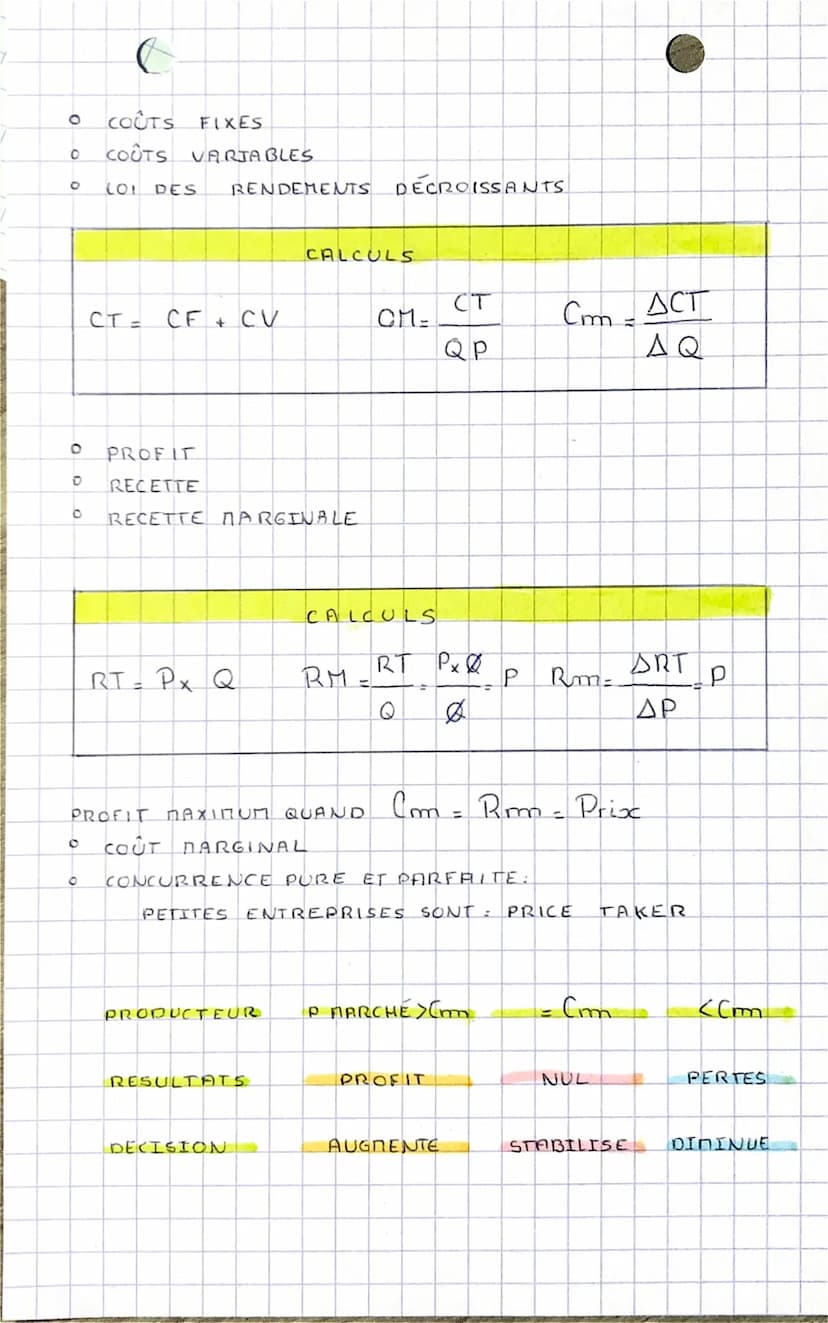 ° COÛTS FIXES
° COÛTS VARIABLES
° LOI DES RENDEMENTS DÉCROISSANTS
CALCULS
CT = CF + CV CM = CT / QP Cm = ΔCT / ΔQ
° PROFIT
° RECETTE
° RECETTE MARGINALE
CALCULS
RT = P x Q RM = RT / Q = P x Q / Q = P Rm = ΔRT / ΔP = P
PROFIT MAXIMUM QUAND Cm = Rm = Prix
° COÛT MARGINAL
° CONCURRENCE PURE ET PARFAITE :
PETITES ENTREPRISES SONT : PRICE TAKER
PRODUCTEUR P MARCHÉ > Cm = Cm < Cm
RESULTATS PROFIT NUL PERTES
DECISION AUGMENTE STABILISE DIMINUE